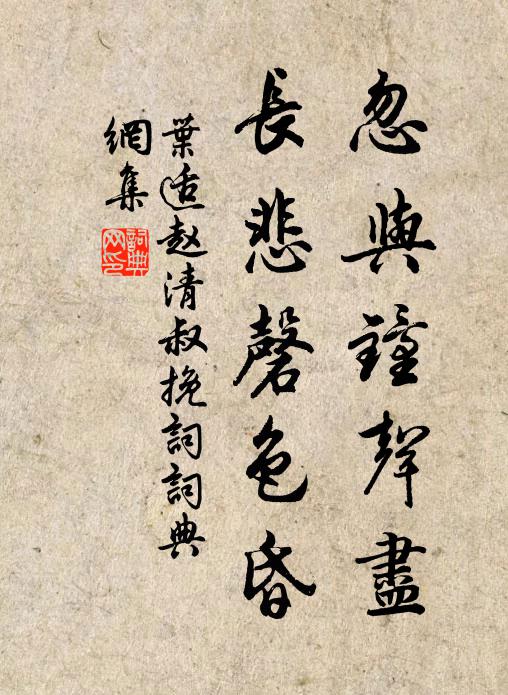 忽與鐘聲盡
長悲磬色昏
葉适赵清叔挽詞詞典
網集
詞典
网印